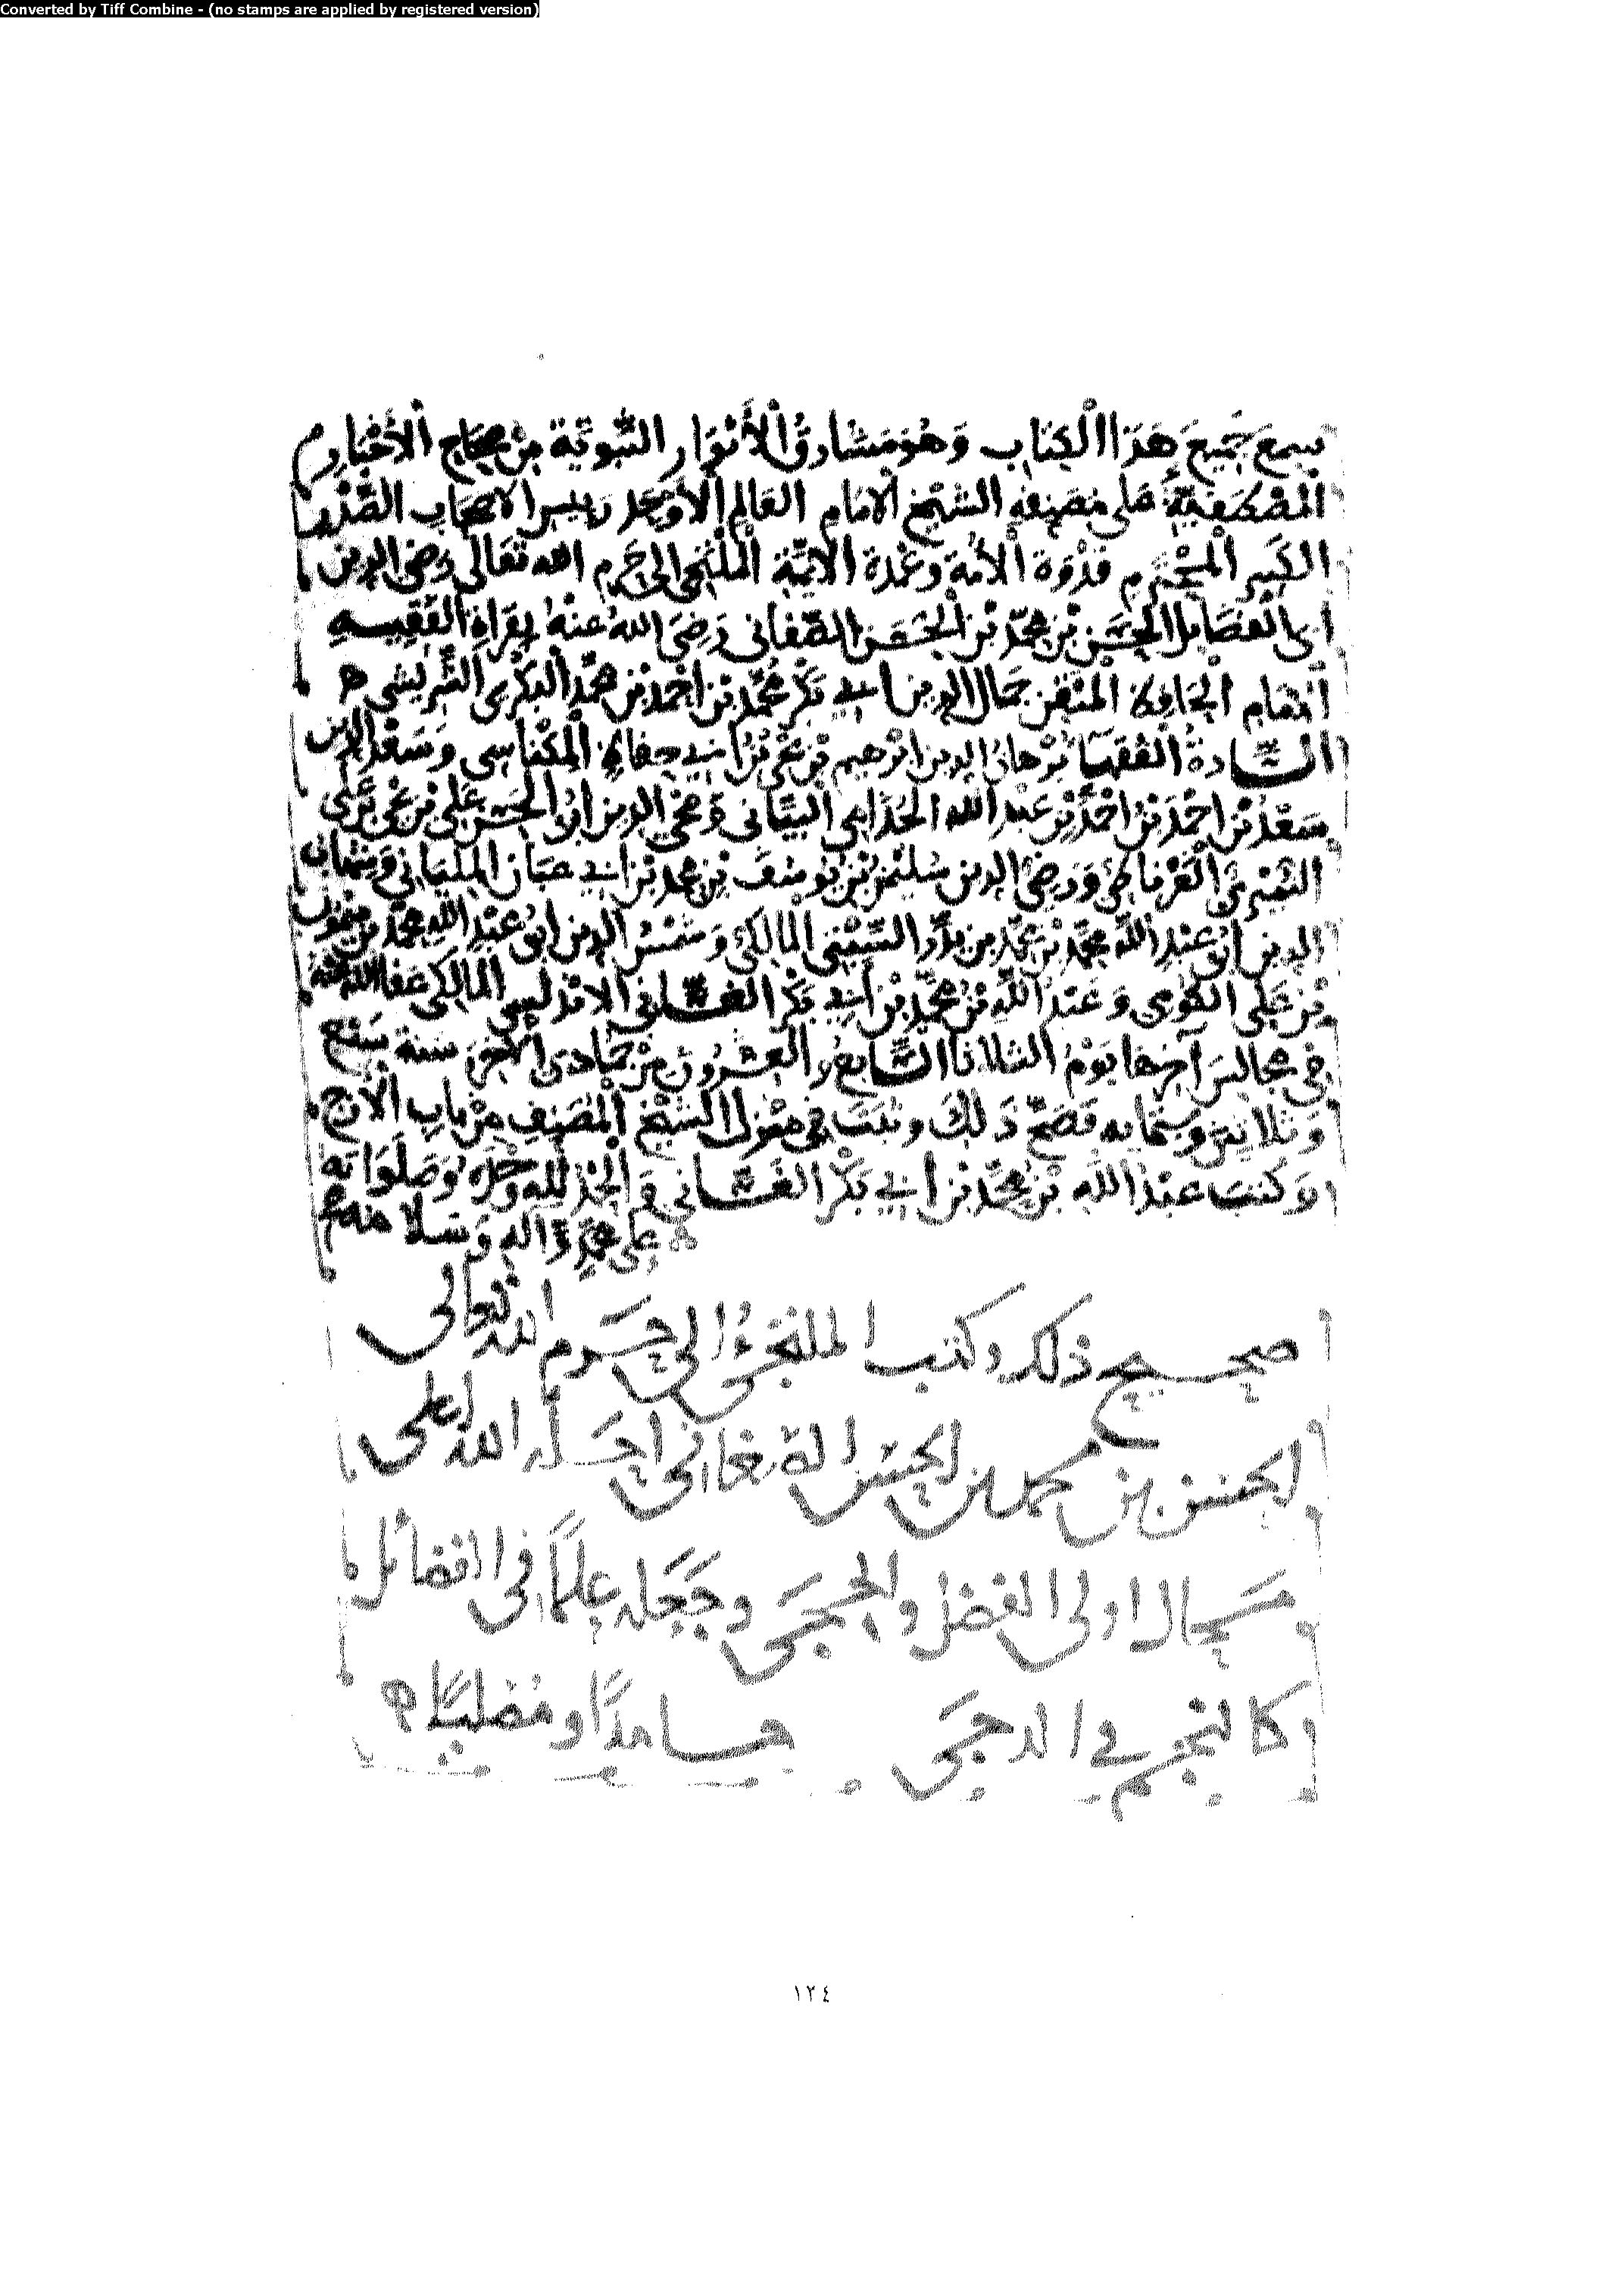 Converted by Tiff Combine - (no stamps are applied by registered version)
سمع جميع هذا الكتاب وهو مشارق الأنوار النبوية من صحاح الأخبار
المصطفية على مصنفه الشيخ الامام العالم الأوحد رييس الاصحاب الصدر
الكبير المحترم قدوة الأمة وعمدة الايمة الملتجى الى حرم الله تعالى رضى الدين
ابى الفضايل الحسن بن محمد بن الحسن الصغانى رضى الله عنه بقراة الفقيه
الامام الحافظ المتقن جمال الدين ابي بكر محمد بن احمد بن محمد البكرى الشريشى
السادة الفقها برهان الدين ابرهيم بن يحيى بن ابي حفاظ المكناسى وسعد الدين
سعد بن احمد بن احمد بن عبد الله الجذامى البيانى و الدين ابو الحسن على بن يحيى بن على
الغرناطى ورضى الدين سليمن بن يوسف بن محمد بن ابي المليانى
الدين ابو عبد الله محمد بن محمد بن بدر السبتى المالكى وشمس الدين ابو عبد الله محمد بن
بن على الكومى وعبد الله بن محمد بن أبي بكر الغسانى الاندلسى المالكى عفا الله عنه
فى مجالس آخرها يوم الثلاثا السابع والعشرون من جمادى الآخرة سنة سبع
وثلاثين وستمايه فصح ذلك وثبت فى منزل الشيخ المصنف من باب الازج
وكتب عبد الله بن محمد بن ابي بكر الغسانى والحمد لله وحده وصلواته
على محمد واله وسلامه
صحيح ذلك وكتب الملتجئ الى حرم الله تعالى
الحسن بن محمد بن الحسن الصغانى احله الله اعلى
محال اولى الفضل والحجى وجعله علما فى الفضائل
كالنجم في الدجى حامدا ومصليا
١٢٤